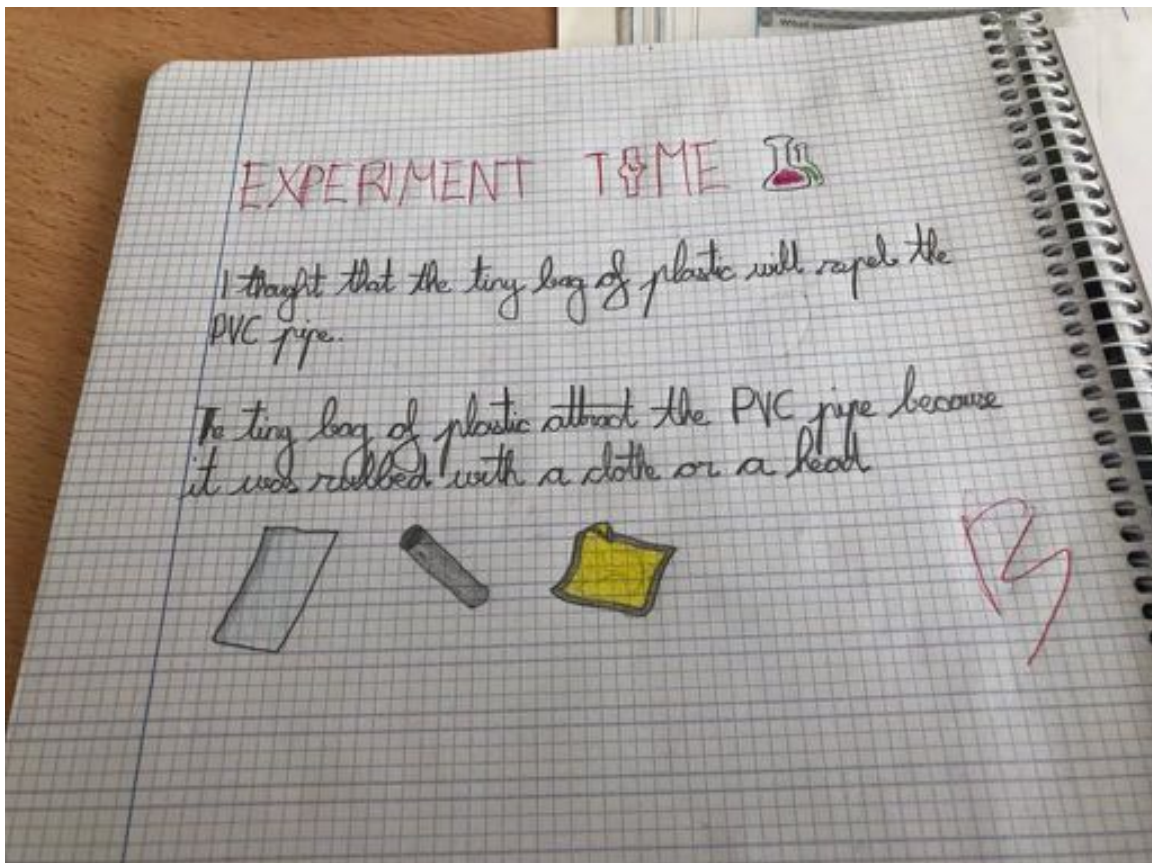 What
EXPERIMENT TIME
I thaught that the tiny bag of plastic will rapel the
PVC pipe.
The tiny bag of plastic attract the PVC pipe because
it was rubbed with a clothe or a head
B